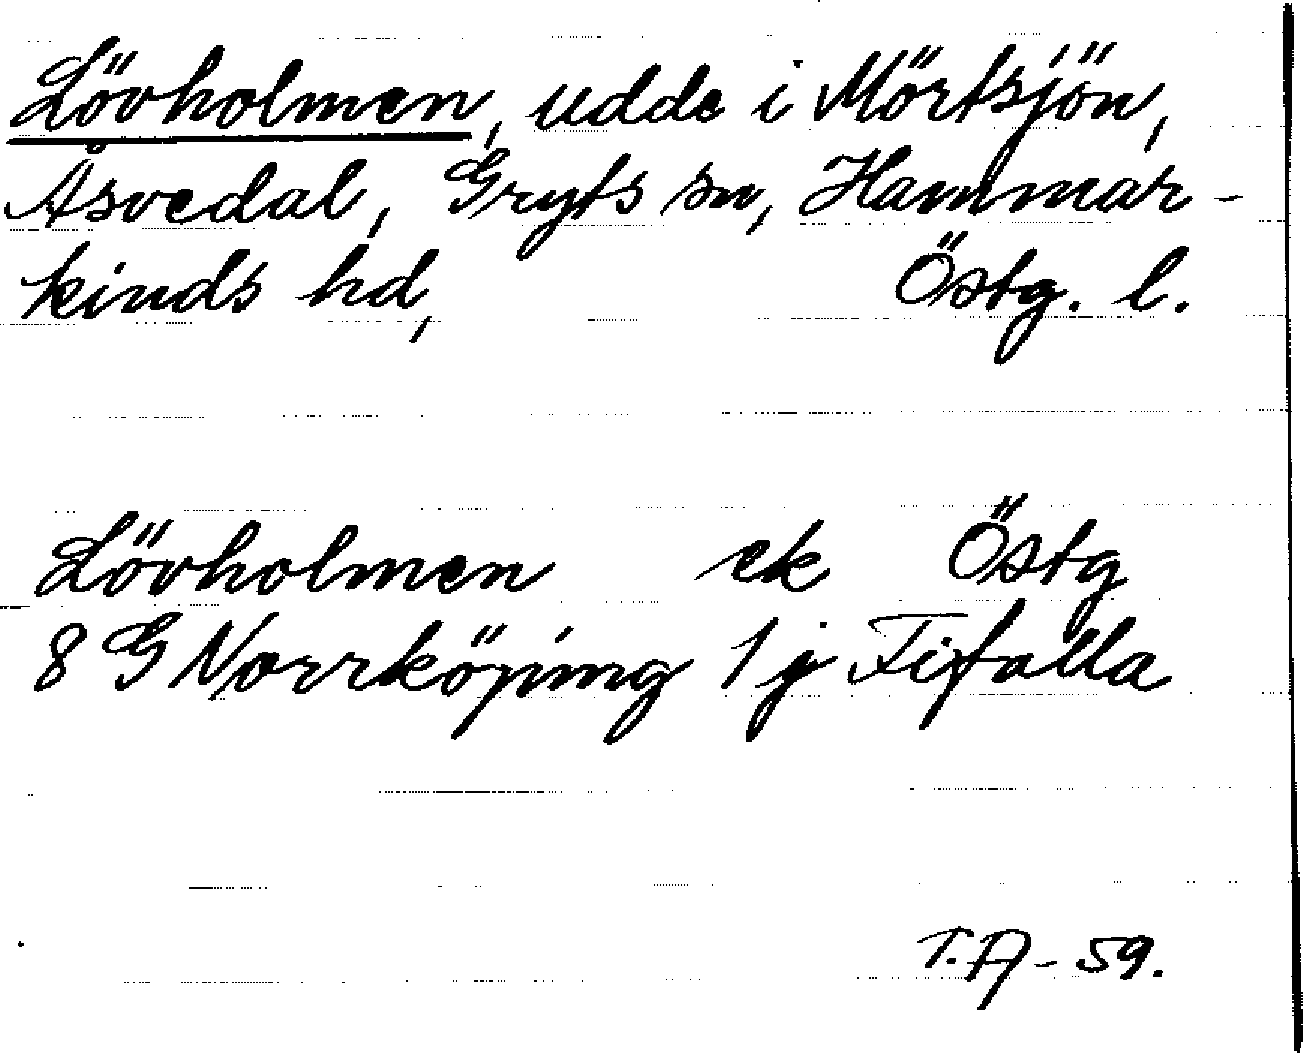 Lövholmen, udde i Mörtsjön,
Åsvedal, Gryts sn, Hammar-
kinds hd, Östg. l.
Lövholmen ek Östg
8 G Norrköping 1 j Fifalla
T.A - 59.